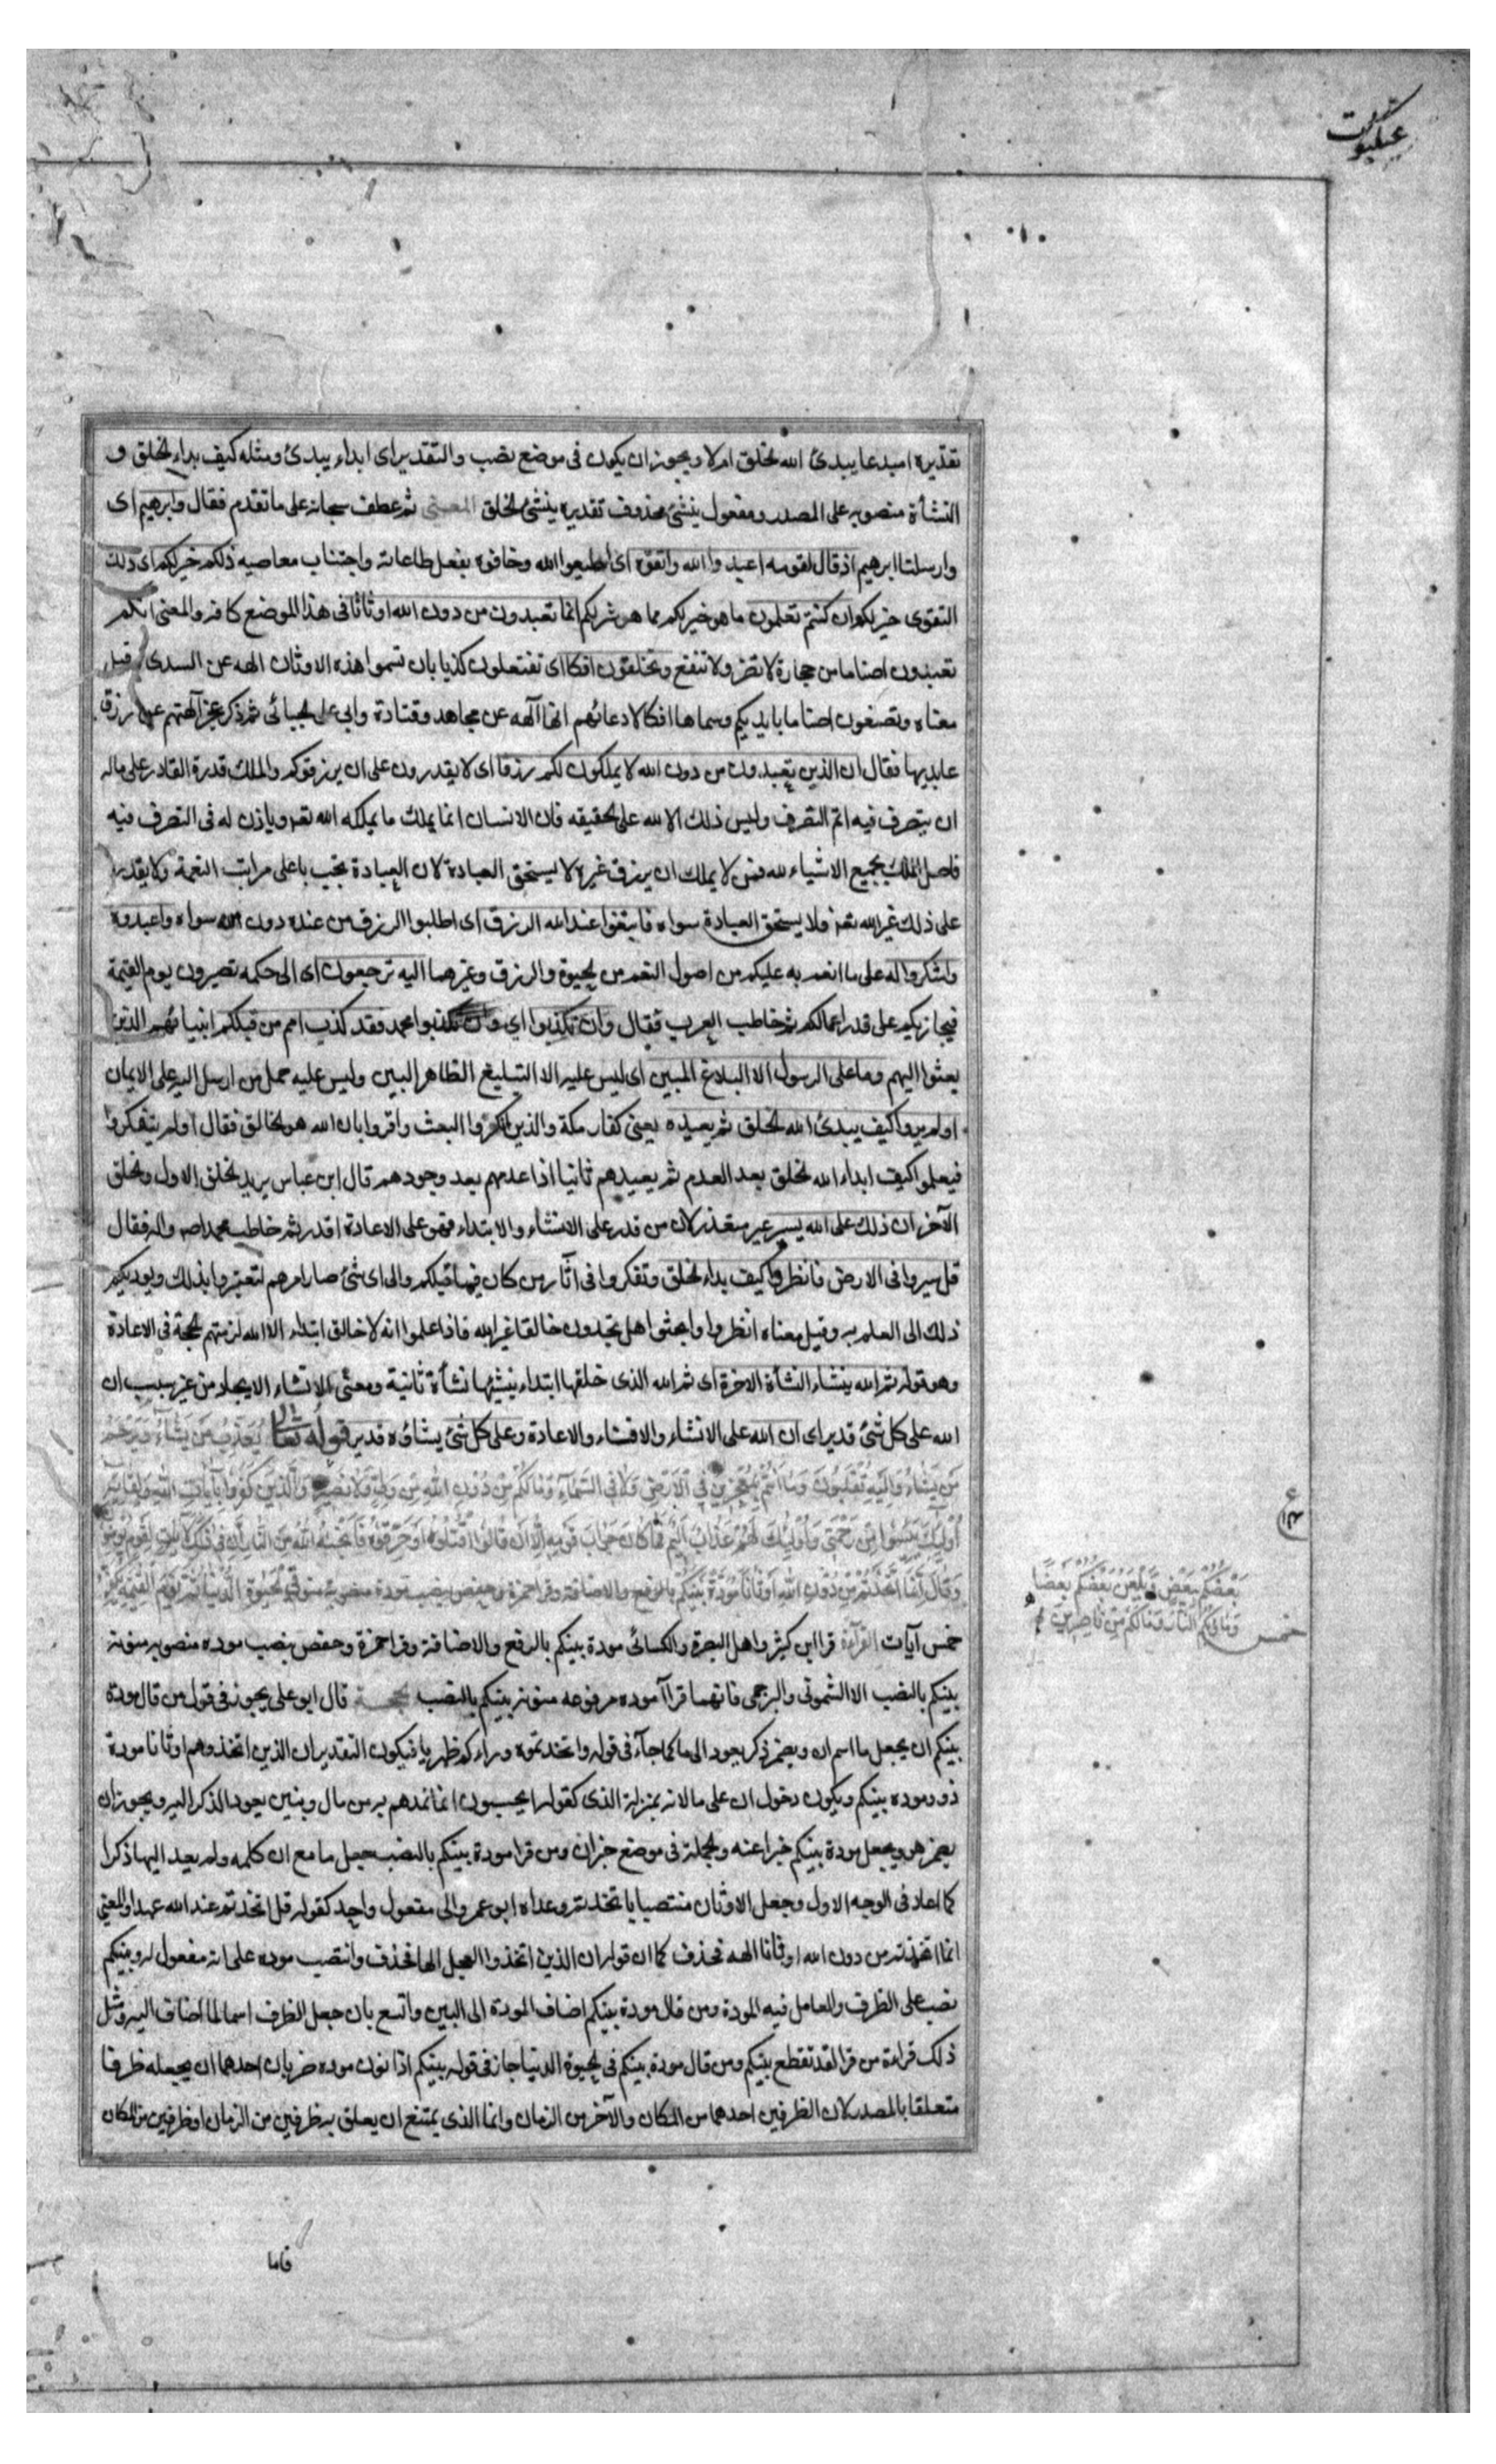 عنكبوت
تقديره امبدعا يبدئ الله الخلق ام لا ويجوز ان يكون فى موضع نصب والتقدير اى ابداء يبدئ ومثله كيف بداء الخلق و
النشأة منصوبه على المصدر ومفعول ينشئ محذوف تقديره ينشئ الخلق المعنى ثم عطف سبحانه على ما تقدم فقال وابرهيم اى
وارسلنا ابرهيم اذ قال لقومه اعبدوا الله واتقوه اى اطيعوا الله وخافوه بفعل طاعاته واجتناب معاصيه ذلكم خير لكم اى ذلك
التقوى خير لكم ان كنتم تعلمون ما هو خير لكم مما هو شر لكم انما تعبدون من دون الله اوثانا فى هذا الموضع كافه والمعنى انكم
تعبدون اصناما من حجارة لا تضر ولا تنفع وتخلقون افكا اى تفتعلون كذبا بان تسموا هذه الاوثان الهه عن السدى وقيل
معناه وتصنعون اصناما بايديكم وسماها افكا لادعائهم انها آلهه عن مجاهد وقتادة وابي على الجبائى ثم ذكر عجز آلهتهم عن رزق
عابديها فقال ان الذين تعبدون من دون الله لا يملكون لكم رزقا اى لا يقدرون على ان يرزقوكم والملك قدرة القادر على ماله
ان يتصرف فيه اتم التصرف وليس ذلك الا لله على الحقيقه فان الانسان انما يملك ما يملكه الله تعه وياذن له فى التصرف فيه
فاصل الملك لجميع الاشياء لله فمن لا يملك ان يرزق غيره لا يستحق العبادة لان العبادة تجب باعلى مراتب النعمة ولا يقدر
على ذلك غير الله تعه فلا يستحق العبادة سواه فابتغوا عند الله الرزق اى اطلبوا الرزق من عنده دون من سواه واعبدوه
واشكروا له على ما انعم به عليكم من اصول النعم من الحيوة والرزق وغيرهما اليه ترجعون اى الى حكمه تصيرون يوم القيمة
فيجازيكم على قدر اعمالكم ثم خاطب العرب فقال وان تكذبوا اي وان تكذبوا محمد فقد كذب امم من قبلكم انبيائهم الذين
بعثوا اليهم وما على الرسول الا البلاغ المبين اى ليس عليه الا التبليغ الظاهر البين وليس عليه حمل من ارسل اليه على الايمان
اولم يروا كيف يبدئ الله الخلق ثم يعيده يعنى كفار مكة والذين انكروا البعث واقروا بان الله هو الخالق فقال اولم يتفكروا
فيعلموا كيف ابداء الله الخلق بعد العدم ثم يعيدهم ثانيا اذا اعدمهم بعد وجودهم قال ابن عباس يريد الخلق الاول والخلق
الآخر ان ذلك على الله يسير غير متعذر لان من قدر على الانشاء والابتداء فهو على الاعادة اقدر ثم خاطب محمدا ص واله فقال
قل سيروا فى الارض فانظروا كيف بداء الخلق وتفكروا فى آثار من كان فيها قبلكم والى اى شئ صار امرهم لتعتبروا بذلك ويوديكم
ذلك الى العلم به وقيل معناه انظروا وابحثوا هل تجدون خالقا غير الله فاذا علموا انه لا خالق ابتداء الا الله لزمتهم الحجة فى الاعادة
وهو قوله ثم الله ينشاء النشأة الاخرة اى ثم الله الذى خلقها ابتداء ينشيها نشأة ثانية ومعنى الانشاء الايجاد من غير سبب ان
الله على كل شئ قدير اى ان الله على الانشاء والافناء والاعادة وعلى كل شئ يشاؤه قدير قوله تعالى يُعَذِّبُ مَن يَشَاءُ وَيَرحَمُ
مَن يَشَاءُ وَالَيهِ تُقلَبُونَ وَمَا اَنتُم بِمُعجِزِينَ فِي الاَرضِ وَلاَ فِى السَّمَاءِ وَمَا لَكُم مِن دُونِ اللهِ مِن وَلِىٍّ وَلاَ نَصِيرٍ وَالَّذِينَ كَفَرُوا بِآيَاتِ اللهِ وَلِقَائِهِ
اُولٰئِكَ يَئِسُوا مِن رَحمَتِى وَاُولٰئِكَ لَهُم عَذَابٌ اَلِيمٌ فَمَا كَانَ جَوَابَ قَومِهِ اِلَّا اَن قَالُوا اقتُلُوهُ اَو حَرِّقُوهُ فَاَنجٰهُ اللهُ مِنَ النَّارِ اِنَّ فِى ذٰلِكَ لَآيَاتٍ لِقَومٍ يُؤمِنُونَ
وَقَالَ اِنَّمَا اتَّخَذتُم مِن دُونِ اللهِ اَوثَانًا مَوَدَّةَ بَينِكُم بالرفع والاضافة وقرا حمزة وحفص بنصب مودة منصوبة منون فِى الحَيٰوةِ الدُّنيَا ثُمَّ يَومَ القِيٰمَةِ يَكفُرُ
بَعضُكُم بِبَعضٍ وَيَلعَنُ بَعضُكُم بَعضًا
وَمَاوٰيكُمُ النَّارُ وَمَا لَكُم مِن نَاصِرِينَ
خمس
خمس آيات القراءة قرا ابن كثير واهل البصرة والكسائى مودة بينكم بالرفع والاضافة وقرا حمزة وحفص بنصب موده منصوبه منونه
بينكم بالنصب الا الشمونى والبرجمى فانهما قراآ موده مرفوعه منونه بينكم بالنصب الحجة قال ابو على يجوز فى قول من قال مودة
بينكم ان يجعل ما اسم ان ويضمر ذكر يعود الى ما كما جآء فى قوله واتخذتموه وراءكم ظهريا فيكون التقدير ان الذين اتخذوهم اوثانا مودة
ذوو موده بينكم ويكون دخول ان على ما لانه بمنزلة الذى كقوله ايحسبون انما نمدهم به من مال وبنين يعود الذكر اليه ويجوز ان
يضمر هو ويجعل مودة بينكم خبرا عنه والجملة فى موضع خبر ان ومن قرا مودة بينكم بالنصب جعل ما مع ان كلمه ولم يعد اليها ذكرا
كما اعاد فى الوجه الاول وجعل الاوثان منتصبا باتخذتم وعداه ابو عمر والى مفعول واحد كقوله قل اتخذتم عند الله عهدا والمعنى
انما اتخذتم من دون الله اوثانا الهه فحذف كما ان قوله ان الذين اتخذوا العجل الها فحذف وانتصب موده على انه مفعول له وبينكم
نصب على الظرف والعامل فيه المودة ومن قال مودة بينكم اضاف المودة الى البين واتسع بان جعل الظرف اسما لما اضاف اليه ومثل
ذلك قراءة من قرا لقد تقطع بينكم ومن قال مودة بينكم فى الحيوة الدنيا جاز فى قوله بينكم اذا نون موده ضربان احدهما ان يجعله ظرفا
متعلقا بالمصدر لان الظرفين احدهما من المكان والآخر من الزمان وانما الذى يمتنع ان يعلق به ظرفين من الزمان او ظرفين من المكان
فاما